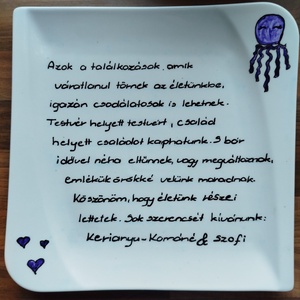 Azok a találkozások, amik
váratlanul törnek az életünkbe,
igazán csodálatosak is lehetnek.
Testvér helyett testvért, család
helyett családot kaphatunk. S bár
idővel néha eltűnnek, vagy megváltoznak,
emlékük örökké velünk maradnak.
Köszönöm, hogy életünk részei
lettetek. Sok szerencsét kívánunk:
Kerianyu-Kománé & Szofi